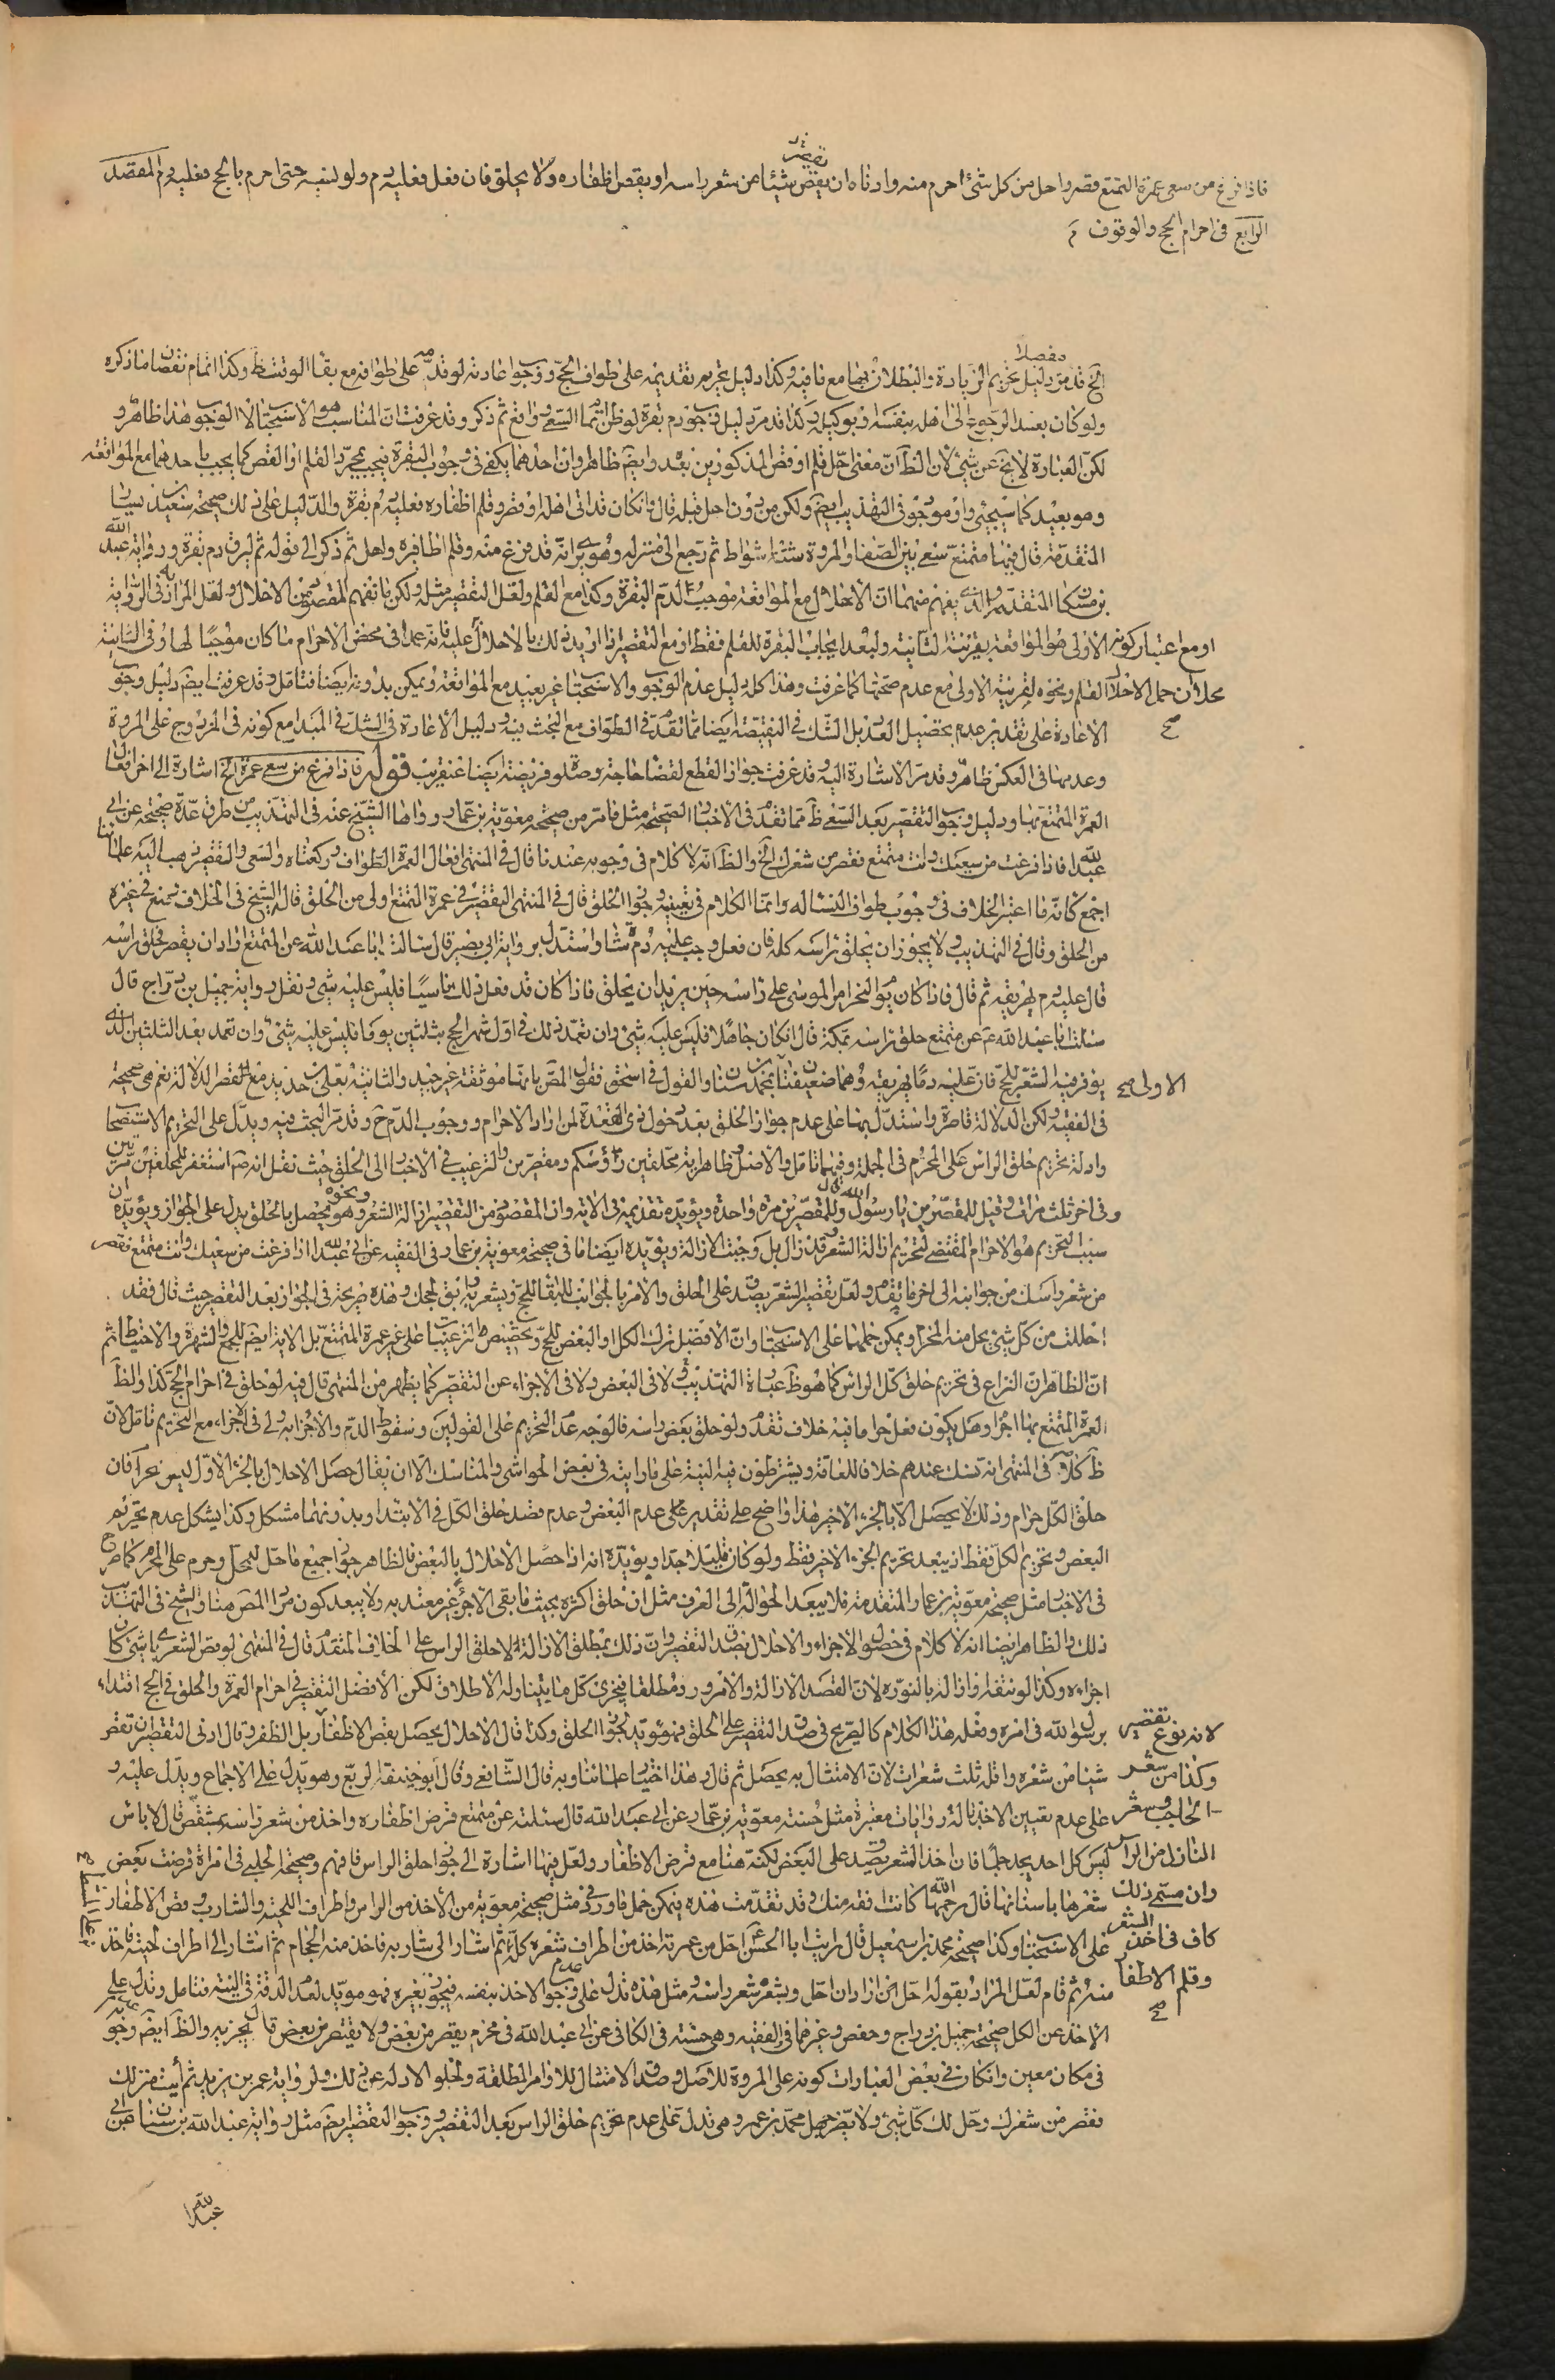 فاذا فرغ من سعى عمرة التمتع قصر واحل من كل شئ احرم منه وادناه ان يقص شيئا من شعر راسه او يقص اظفاره ولا يحلق فان فعل فعليه دم ولو نسيه حتى احرم بالحج فعليه دم المقصد
الرابع فى احرام الحج والوقوف
الخ قد مر دليل تحريم الزيادة والبطلان بها مع نافيه وكذا دليل تحريم تقديمه على طواف الحج ووجوب اعادته لو قدمه على طوافه مع بقاء الوقت ظ وكذا اتمام نقصانها ذكره مفصلا
ولو كان بعد الرجوع الى اهله بنفسه او بوكيله وكذا قد مر دليل وجوب دم بقرة لو ظن اتمام السعى واقع ثم ذكر وقد عرفت ان المناسب هو الاستحباب لا الوجوب هذا ظاهر و
لكن العبارة لا تخ عن شئ لان الظ ان معنى احل قلم او قص المذكورين بعده وايض ظاهر وان احدهما يكفى فى وجوب البقرة فيجب بمجرد القلم او القص كما يجب باحدهما مع المواقعة
وهو بعيد كما سيجئ واو موجود فى التهذيب ايض ولكن من دون احل قبله قال فان كان قد اتى اهله او قصر وقلم اظفاره فعليه دم بقرة والدليل على ذلك صحيحة سعيد بن يسار
المتقدمة قال فيها متمتع سعى بين الصفا والمروة ستة اشواط ثم رجع الى منزله وهو يرى انه قد فرغ منه وقلم اظافيره واحل ثم ذكر الى قوله ثم ليرق دم بقرة ورواية عبد الله
بن مسكان المتقدمة والذى يفهم منهما ان الاحلال مع المواقعة موجب لدم البقرة وكذا مع القلم ولعل التقصير مثله ولكن ما نفهم المقصود من الاحلال ولعل المراد به فى الرواية
الاولى هو المواقعة بقرينة الثانية ولبعد ايجاب البقرة للقلم فقط او مع التقصير اذا اريد ذلك بالاحلال عليه فانه عمدا فى محض الاحرام ما كان موجبا لها وفى الثانية
او مع اعتبار كونه
محلا ان حمل الاحلال القلم ونحوه لقرينة الاولى مع عدم صحتها كما عرفت وهذا كله دليل عدم الوجوب والاستحباب غير بعيد مع المواقعة ويمكن بدونه ايضا فتامل وقد عرفت ايض دليل وجوب
الاعادة على تقدير عدم تحصيل العدد بل الشك فى النقيصة ايضا مما تقدم فى الطواف مع البحث فيه ودليل الاعادة فى الشك فى المبدا مع كونه فى المزدوج على المروة
وعدمها فى العكس ظاهر وقد مر الاشارة اليه وقد عرفت جواز القطع لقضاء حاجة وصلوة فريضة ايضا عنقريب قوله فاذا فرغ من سعى عمرة الخ اشارة الى اخر افعال
العمرة المتمتع بها ودليل وجوب التقصير بعد السعى ظ مما تقدم فى الاخبار الصحيحة مثل ما مر من صحيحة معوية بن عمار ورواها الشيخ عنه فى التهذيب من طرق عدة صحيحة عن ابى
عبد الله فاذا فرغت من سعيك وانت متمتع فقصر من شعرك الخ والظ انه لا كلام فى وجوبه عندنا قال فى المنتهى افعال العمرة الطواف وركعتاه والسعى والتقصير ذهب اليه علمائنا
اجمع كانه ما اعتبر الخلاف فى وجوب طواف النساء له وانما الكلام فى تعيينه وجواز الحلق قال فى المنتهى التقصير فى عمرة التمتع اولى من الحلق قال الشيخ فى الخلاف يمنع فى غيره
من الحلق وقال فى التهذيب ولا يجوز ان يحلق راسه كله فان فعل وجب عليه دم شاة واستدل برواية ابى بصير قال سالت ابا عبد الله عن المتمتع اراد ان يقصر فحلق راسه
قال عليه دم يهريقه ثم قال فاذا كان يوم النحر امر الموسى على راسه حين يريد ان يحلق فاذا كان قد فعل ذلك ناسيا فليس عليه شئ ونقل رواية جميل بن دراج قال
سئلت ابا عبد الله ع عن متمتع حلق راسه بمكة قال ان كان جاهلا فليس عليه شئ وان تعمد ذلك فى اول شهر الحج بثلثين يوما فليس عليه شئ وان تعمد بعد الثلثين الذى
يوفر فيه الشعر للحج فان عليه دما يهريقه وهما ضعيفتان بمحمد بن سنان والقول فى اسحق فقول المص بانها موثقة غير جيد والثانية بعلى بن حديد مع القصر الدلالة نعم هى صحيحة
الاولى صح
فى الفقيه ولكن الدلالة قاصرة واستدل بها على عدم جواز الحلق بعد دخول ذى القعدة لمن اراد الاحرام ووجوب الدم ح وقد مر البحث فيه ويدل على التحريم الاستصحاب
وادلة تحريم حلق الراس على المحرم فى الجملة وفيهما تامل والاصل وظاهر اية محلقين رؤسكم ومقصرين والترغيب فى الاخبار الى الحلق حيث نقل انه ص استغفر للمحلقين مرتين
وفى اخر ثلث مرات وقيل للمقصرين يا رسول الله قال وللمقصرين مرة واحدة ويؤيده تقديمه فى الاية وان المقصود من التقصير ازالة الشعر ونحوه وهو يحصل بالحلق يدل على الجواز ويؤيده ان
سبب التحريم هو الاحرام المقتضى لتحريم ازالة الشعر وقد زال بل وجبت الازالة ويؤيده ايضا ما فى صحيحة معوية بن عمار وفى الفقيه عن ابى عبد الله اذا فرغت من سعيك وانت متمتع فقصر
من شعر راسك من جوانبه الى اخر ما تقدم ولعل تقصير الشعر يصدق على الحلق والامر بالجوانب للبقاء للحج ويشعر به وابق لحجك وهذه صريحة فى الجواز بعد التقصير حيث قال فقد
احللت من كل شئ يحل منه المحرم ويمكن حملها على الاستحباب وان الافضل ترك الكل او البعض للحج وتخصيص الترغيبات على غير عمرة التمتع بل الاية ايض للجمع والشهرة والاحتياط ثم
ان الظاهر ان النزاع فى تحريم حلق كل الراس كما هو ظ عبارة التهذيب لا فى البعض ولا فى الاجزاء عن التقصير كما يظهر من المنتهى قال فيه لو حلق فى احرام الحج كذا والظ
العمرة المتمتع بها اجزا وهل يكون فعل حراما فيه خلاف تقدم ولو حلق بعض راسه فالوجه عدم التحريم على القولين وسقوط الدم والاجزاء به ولى فى الاجزاء مع التحريم تامل لان
ظ كلامه فى المنتهى انه نسك عندهم خلافا للعامة ويشترطون فيه النية على ما رايته فى بعض الحواشى والمناسك الا ان يقال حصل الاحلال بالجزء الاول ليس بمحرم فان
حلق الكل حرام وذلك لا يحصل الا بالجزء الاخير هذا واضح على تقدير على عدم البعض وعدم قصد حلق الكل فى الابتداء وبدونهما مشكل وكذا يشكل عدم تحريم
البعض وتحريم الكل فقط اذ يبعد تحريم الجزء الاخير فقط ولو كان قليلا جدا ويؤيده انه اذا حصل الاحلال بالبعض فالظاهر جواز جميع ما حل للمحل وحرم على المحرم كما صرح
فى الاخبار مثل صحيحة معوية بن عمار المتقدمة فلا يبعد الحوالة الى العرف مثل ان حلق اكثره بحيث ما بقى الاجزاء غير معتد به ولا يبعد كون مراد المص هنا والشيخ فى التهذيب
ذلك والظاهر ايضا انه لا كلام فى حصول الاجزاء والاحلال بصدق التقصير وان ذلك بمطلق الازالة الا حلق الراس على الخلاف المتقدم قال فى المنتهى لو قص الشعر باى شئ كان
اجزاه وكذا لو نتفه او ازاله بالنورة لان القصد الازالة والامر ورد مطلقا فيجزى كل ما يتناوله الاطلاق لكن الافضل التقصير فى احرام العمرة والحلق فى الحج اقتداء
برسول الله فى امره وفعله هذا الكلام كالصريح فى صدق التقصير على الحلق فهو مؤيد لجواز الحلق وكذا قال الاحلال يحصل بقص الاظفار بل الظفر وقال ادنى التقصير ان تقصر
لانه نوع تقصير
شيئا من شعره واقله ثلث شعرات لان الامتثال به يحصل ثم قال وهذا اختيار علمائنا وبه قال الشافعى وقال ابو حنيفة الربع وهو يدل على الاجماع ويدل عليه و
وكذا من شعر
على عدم تعيين الاخذ بالة روايات معتبرة مثل حسنة معوية بن عمار عن ابى عبد الله قال سئلته عن متمتع قرض اظفاره واخذ من شعر راسه بمشقص قال لا باس
الحاجب وشعر
ليس كل احد يجد جلما فان اخذ الشعر يصدق على البعض لكنه هنا مع قرض الاظفار ولعل فيها اشارة الى جواز حلق الراس فافهم وصحيحة الحلبى فى امراة قرضت بعض
النازل من الراس
شعرها باسنانها قال رحمها الله كانت افقه منك وقد تقدمت هذه يمكن حمل ما ورد فى مثل صحيحة معوية من الاخذ من الراس واطراف اللحية والشارب وقص الاظفار
وان سمى ذلك
على الاستحباب وكذا صحيحة محمد بن اسمعيل قال رايت ابا الحسن ع احل من عمرته اخذ من اطراف شعره كله ثم اشار الى شاربه فاخذ منه الحجام ثم اشار الى اطراف لحيته فاخذ
كاف فى اخذ الشعر
منه ثم قام لعل المراد بقوله احل حين اراد ان احل ويشعر شعر راسه ومثل هذه تدل على عدم وجوب الاخذ بنفسه فيجوز بغيره فهو مؤيد لعدم الدقة فى النية فتامل وتدل على
وقلم الاظفار صح
الاخذ عن الكل صحيحة جميل بن دراج وحفص وغيرهما فى الفقيه وهى حسنة فى الكافى عن ابى عبد الله فى محرم يقصر من بعض ولا يقصر من بعض قال يجزيه والظ ايض وجوب
فى مكان معين وان كان فى بعض العبارات كونه على المروة للاصل وصدق الامتثال للاوامر المطلقة ولخلو الادلة عن ذلك ولرواية عمر بن يزيد ثم ايت منزلك
فقصر من شعرك وحل لك كل شئ ولا يضر جهل محمد بن عمر وهى تدل على عدم تحريم حلق الراس بعد التقصير ووجوب التقصير ايض مثل رواية عبد الله بن سنان عن ابى
عبد الله